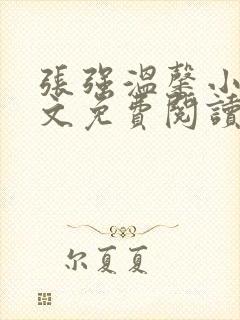 張強溫馨小
文免費閱讀
尔夏夏